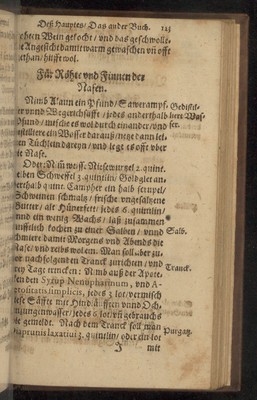 Deß Hauptes/ Das ander Buch. 123
chtem Wein gekocht/ vnd das geschwolle-
ne Angesicht damit warm gewaschen vñ offt
gethan/ hilfft wol.
Für Röhte vnd Finnen der
Nasen.
Nimb Alaun ein Pfund/ Sawerampf-
er vnnd Wegerichsafft/ jedes anderthalb
Pfund/ mische es wol durch einander/ vnd
destilliere ein Wasser darauß/ netze dann lei-
nen Tüchlein dareyn/ vnd leg es offt vber
die Nase.
Gedistil-
liert Was-
ser.
Oder: Niñ weisse Niesewurtzel 2. quint.
Schweffel 3. quintlin/ Goldglet an-
derthalb quint. Campher ein halb scrupel/
Schweinen schmaltz/ frische vngesaltzene
Butter/ alt Hünerfett/ jedes 6. quintlin/
vnnd ein wenig Wachs/ laß zusammen
kochen zu einer Salben/ vnnd
schmiere damit Morgens vnd Abends die
Nase/ vnd reibs wol ein. Man soll aber zu-
vor nachfolgenden Tranck zurichten/ vnd
drey Tage trincken: Nimb auß der Apote-
cken den Syrup Nenupharinum, vnd A-
cetositatis simplicis, jedes 3 lot/ vermisch
diese Säffte mit Hindläufften vnnd Och-
senzungenwasser/ jedes 6 lot/ vñ gebrauchs
wie gemeldt. Nach dem Tranck soll man
laxatiuis 3. quintlin/ oder ein lot
Salb.
Tranck.
Purgatz.
J mit